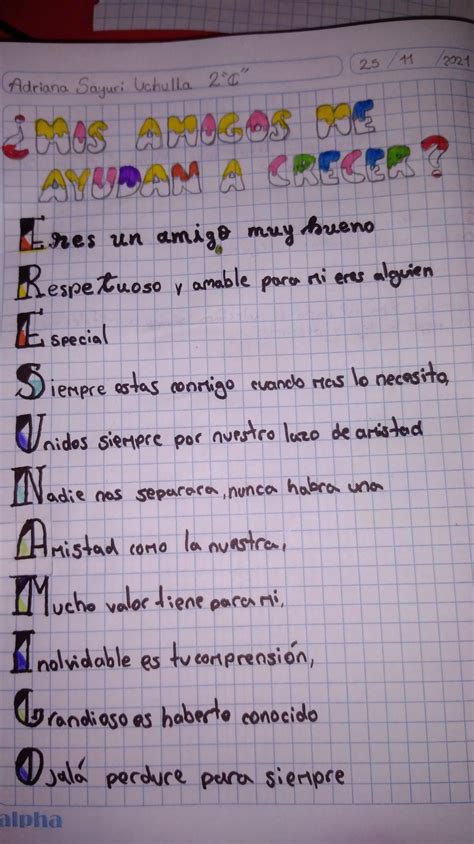 Adriana Sayuri Uchulla 2°"C"
25/11/2021
¿MIS AMIGOS ME
AYUDAN A CRECER?
Eres un amigo muy bueno
Respetuoso y amable para mi eres alguien
Especial
Siempre estas conmigo cuando mas lo necesito,
Unidos siempre por nuestro lazo de amistad
Nadie nos separara, nunca habra una
Amistad como la nuestra,
Mucho valor tiene para mi,
Inolvidable es tu comprensión,
Grandioso es haberte conocido
Ojalá perdure para siempre
alpha